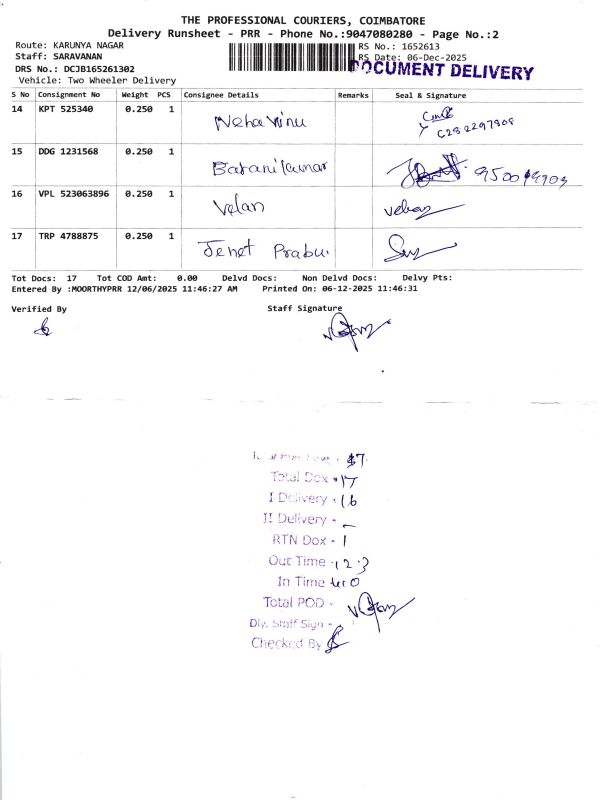 THE PROFESSIONAL COURIERS, COIMBATORE
Delivery Runsheet - PRR - Phone No.:9047080280 - Page No.:2
Route: KARUNYA NAGAR
RS No.: 1652613
Staff: SARAVANAN
RS Date: 06-Dec-2025
DOCUMENT DELIVERY
DRS No.: DCJB165261302
Vehicle: Two Wheeler Delivery
S No Consignment No Weight PCS Consignee Details Remarks Seal & Signature
14 KPT 525340 0.250 1 Neha Vinu
15 DDG 1231568 0.250 1 Baranikumar
16 VPL 523063896 0.250 1 Velan
17 TRP 4788875 0.250 1 Jenet Prabu.
Tot Docs: 17 Tot COD Amt: 0.00 Delvd Docs: Non Delvd Docs: Delvy Pts:
Entered By :MOORTHYPRR 12/06/2025 11:46:27 AM Printed On: 06-12-2025 11:46:31
Verified By Staff Signature
Total Dox - 17
I Delivery - 16
II Delivery - –
RTN Dox - 1
Out Time -
In Time
Total POD -
Dly. Staff Sign -
Checked By